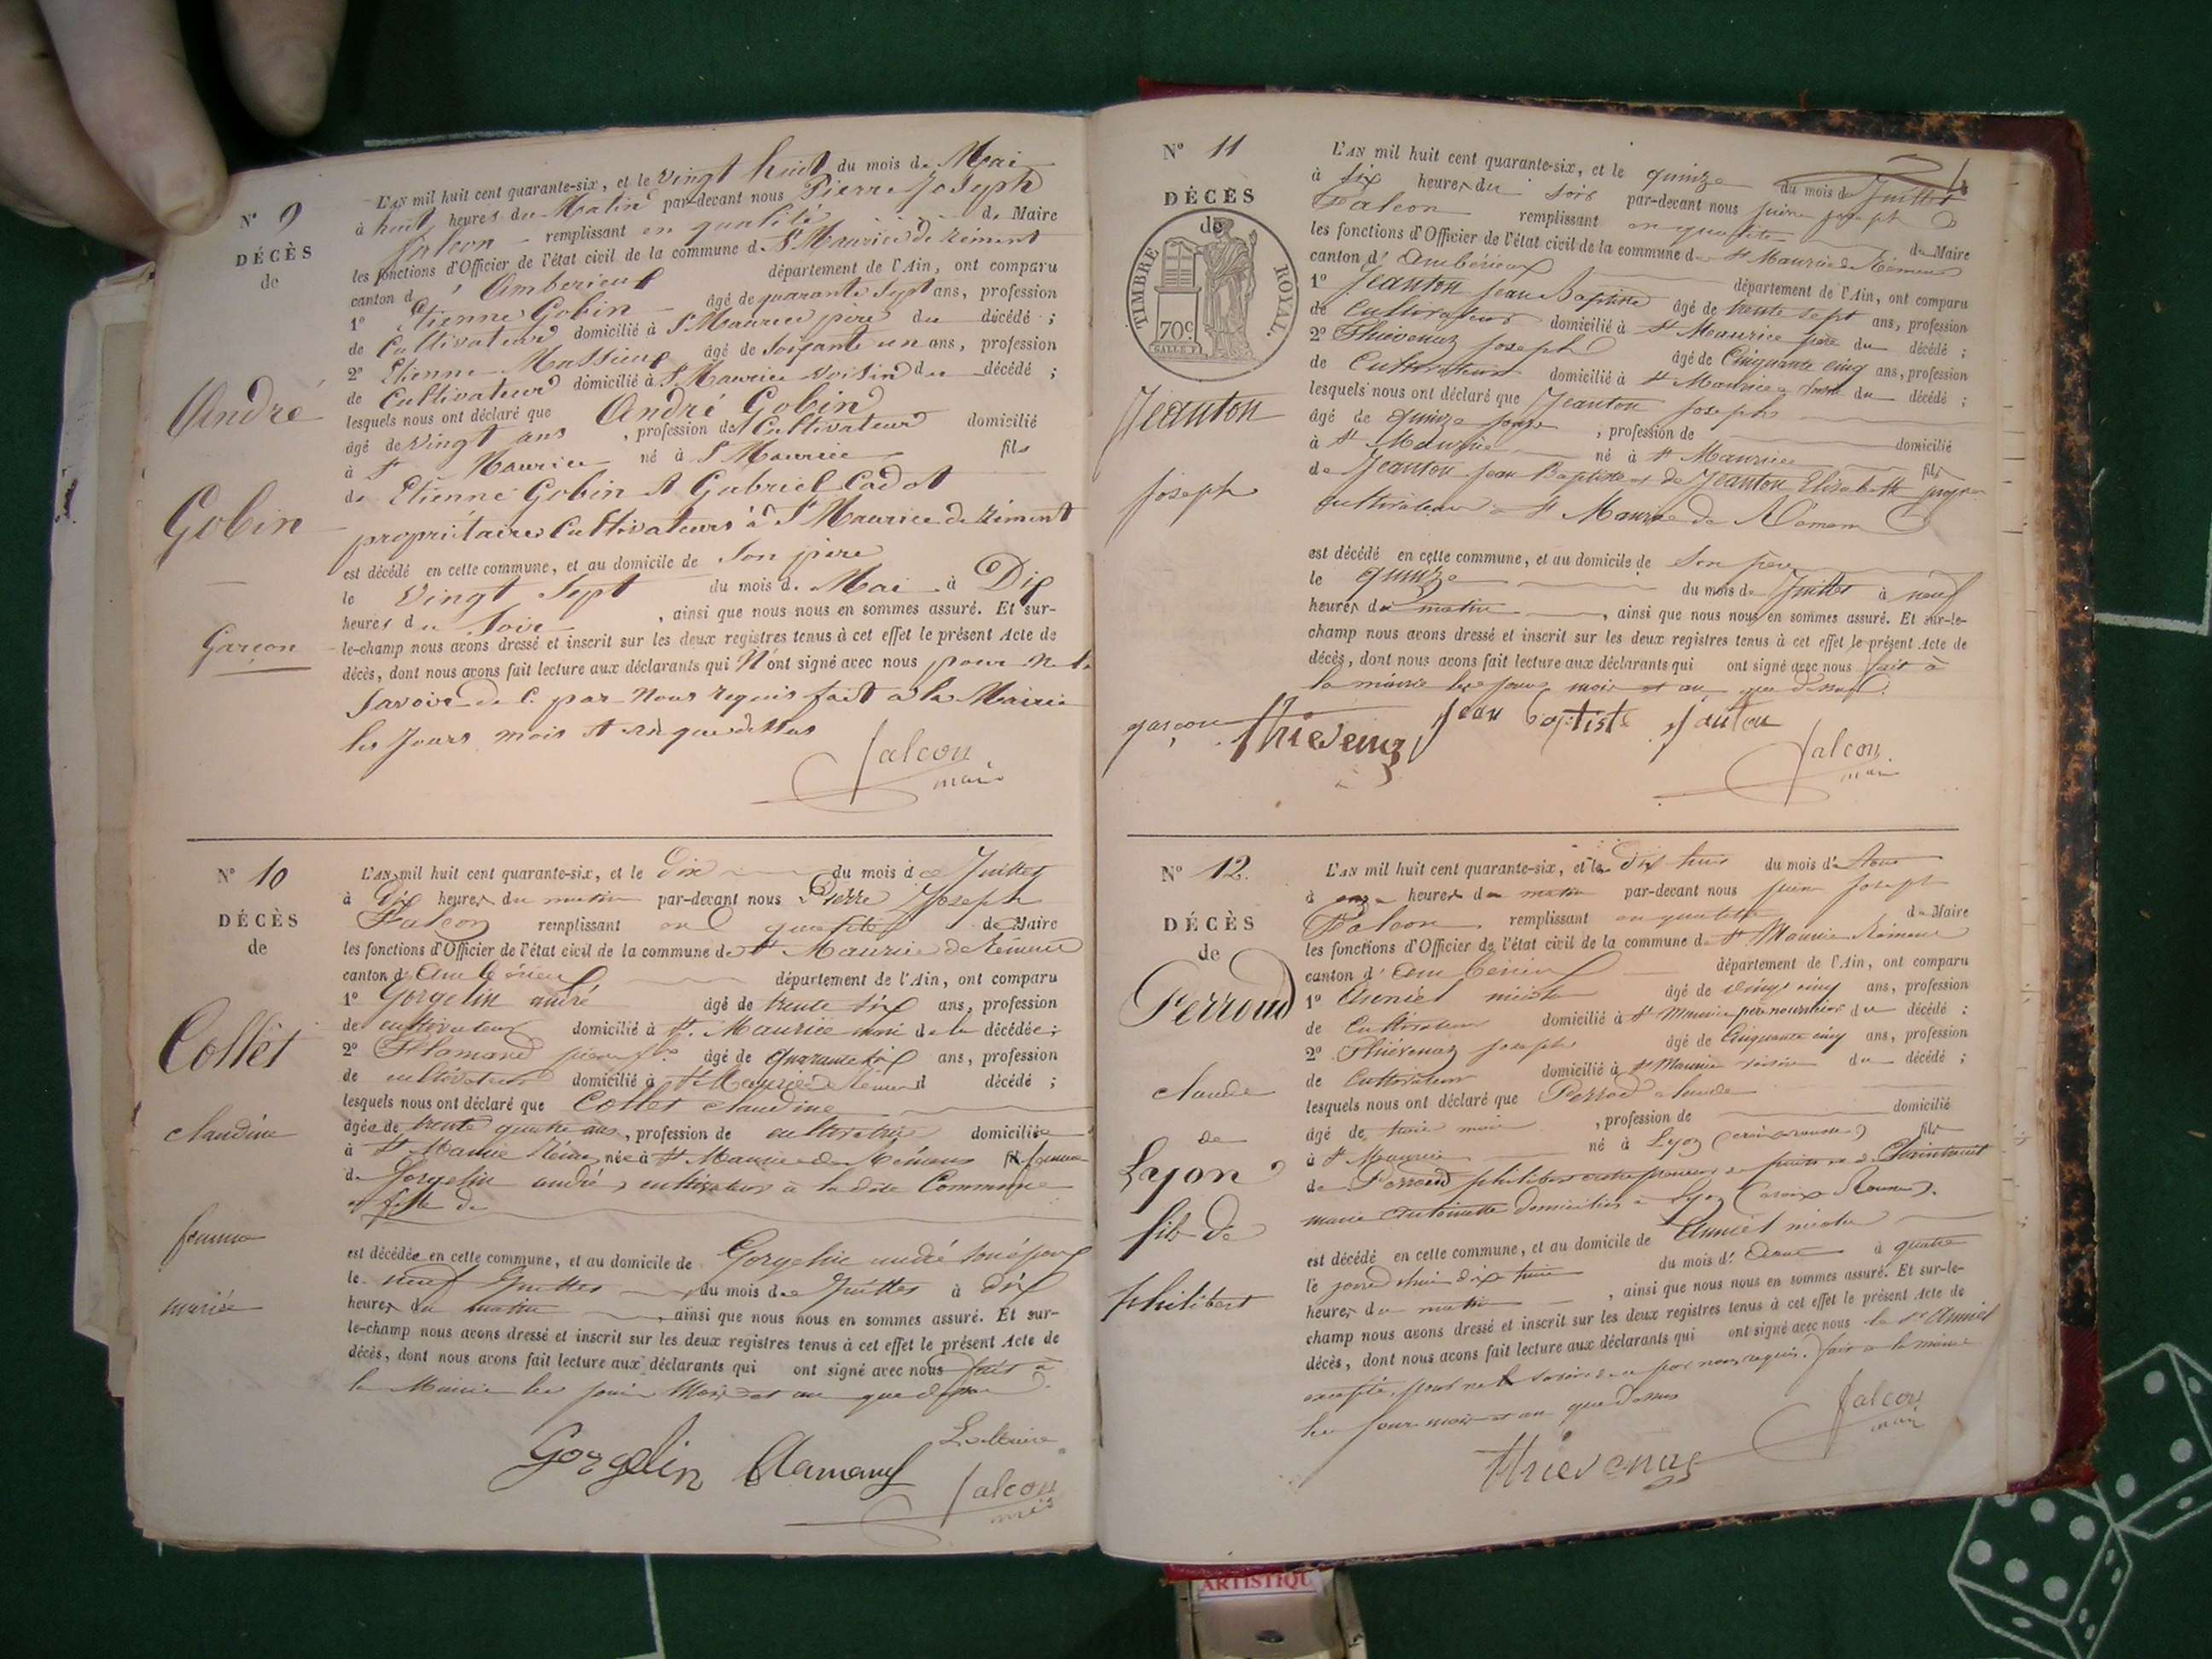 N° 9
DÉCÈS
de
André
Gobin
Garçon
L'AN mil huit cent quarante-six, et le vingt huit du mois de Mai
à huit heures du Matin par-devant nous Pierre Joseph
falcon remplissant en qualité de Maire
les fonctions d'Officier de l'état civil de la commune de St Maurice de Rément
canton d'Amberieux département de l'Ain, ont comparu
1° Etienne Gobin âgé de quarante Sept ans, profession
de Cultivateur domicilié à St Maurice père du décédé ;
2° Etienne Massieux âgé de Soixante un ans, profession
de Cultivateur domicilié à St Maurice voisin du décédé ;
lesquels nous ont déclaré que André Gobin
âgé de vingt ans , profession de Cultivateur domicilié
à St Maurice né à St Maurice fils
de Etienne Gobin et Gabriel Cadot
propriétaires Cultivateurs à St Maurice de Rément
est décédé en cette commune, et au domicile de Son père
le Vingt Sept du mois de Mai à Dix
heures du Soir , ainsi que nous nous en sommes assuré. Et sur-
le-champ nous avons dressé et inscrit sur les deux registres tenus à cet effet le présent Acte de
décès, dont nous avons fait lecture aux déclarants qui N'ont signé avec nous pour ne le
Savoir de C. par Nous requis fait à la Mairie
les Jours mois et an que dessus
falcon
maire
N° 10
DÉCÈS
de
Collet
claudine
femme
mariée
L'AN mil huit cent quarante-six, et le dix du mois de Juillet
à Dix heures du matin par-devant nous Pierre Joseph
Falcon remplissant en qualité de Maire
les fonctions d'Officier de l'état civil de la commune de St Maurice de Rémens
canton d'Ambérieux département de l'Ain, ont comparu
1° Gorgelin andré âgé de trente six ans, profession
de cultivateur domicilié à St. Maurice mari de la décédée ;
2° Flamand âgé de quarante six ans, profession
de cultivateur domicilié à St Maurice de Rémens décédé ;
lesquels nous ont déclaré que Collet claudine
âgée de trente quatre ans, profession de cultivatrice domiciliée
à St Maurice Rémens née à St Maurice de Rémens femme
de Gorgelin andré, cultivateur à la dite Commune
et fille de
est décédée en cette commune, et au domicile de Gorgelin andré son époux
le neuf Juillet du mois de Juillet à dix
heures du matin , ainsi que nous nous en sommes assuré. Et sur-
le-champ nous avons dressé et inscrit sur les deux registres tenus à cet effet le présent Acte de
décès, dont nous avons fait lecture aux déclarants qui ont signé avec nous fait à
la Mairie les jour Mois et an que dessus
Gorgelin flamand
Le Maire
falcon
maire
N° 11
DÉCÈS
de
TIMBRE ROYAL.
70c
Jeanton
Joseph
garçon
L'AN mil huit cent quarante-six, et le quinze du mois de Juillet
à six heures du soir par-devant nous pierre joseph
Falcon remplissant en qualité de Maire
les fonctions d'Officier de l'état civil de la commune de St Maurice de Rémens
canton d'Ambérieux département de l'Ain, ont comparu
1° Jeanton Jean Baptiste âgé de trente sept ans, profession
de Cultivateur domicilié à St Maurice père du décédé ;
2° Thievenaz joseph âgé de Cinquante cinq ans, profession
de Cultivateur domicilié à St Maurice du décédé ;
lesquels nous ont déclaré que Jeanton Joseph
âgé de quinze jours , profession de domicilié
à St Maurice né à St Maurice fils
de Jeanton Jean Baptiste et de Jeanton Elisabeth
cultivateur à St Maurice de Rémens
est décédé en cette commune, et au domicile de son père
le quinze du mois de Juillet à neuf
heures du matin , ainsi que nous nous en sommes assuré. Et sur-le-
champ nous avons dressé et inscrit sur les deux registres tenus à cet effet le présent Acte de
décès, dont nous avons fait lecture aux déclarants qui ont signé avec nous fait à
la mairie les jours mois et an que dessus.
thievenaz Jean baptiste jantou
falcon
maire
N° 12.
DÉCÈS
de
Perroud
claude
de
Lyon
fils de
philibert
L'AN mil huit cent quarante-six, et le dix huit du mois d'Aout
à onze heures du matin par-devant nous pierre joseph
Falcon remplissant en qualité de Maire
les fonctions d'Officier de l'état civil de la commune de St Maurice Rémens
canton d'Ambérieux département de l'Ain, ont comparu
1° Anniel nicolas âgé de vingt cinq ans, profession
de Cultivateur domicilié à St Maurice père nourricier du décédé ;
2° Thiévenaz joseph âgé de Cinquante cinq ans, profession
de Cultivateur domicilié à St Maurice voisin du décédé ;
lesquels nous ont déclaré que Perroud claude
âgé de trois mois , profession de domicilié
à St Maurice né à Lyon (croix rousse) fils
de Perroud philibert et de
marie Antoinette domiciliés à Lyon (croix Rousse).
est décédé en cette commune, et au domicile de Anniel nicolas
le jourd'hui dix huit du mois d'Aout à quatre
heures du matin , ainsi que nous nous en sommes assuré. Et sur-le-
champ nous avons dressé et inscrit sur les deux registres tenus à cet effet le présent Acte de
décès, dont nous avons fait lecture aux déclarants qui ont signé avec nous le Sr Anniel
excepté, pour ne le savoir de ce par nous requis. fait à la mairie
les jour mois et an que dessus
falcon
maire
thievenaz
ARTISTIQU